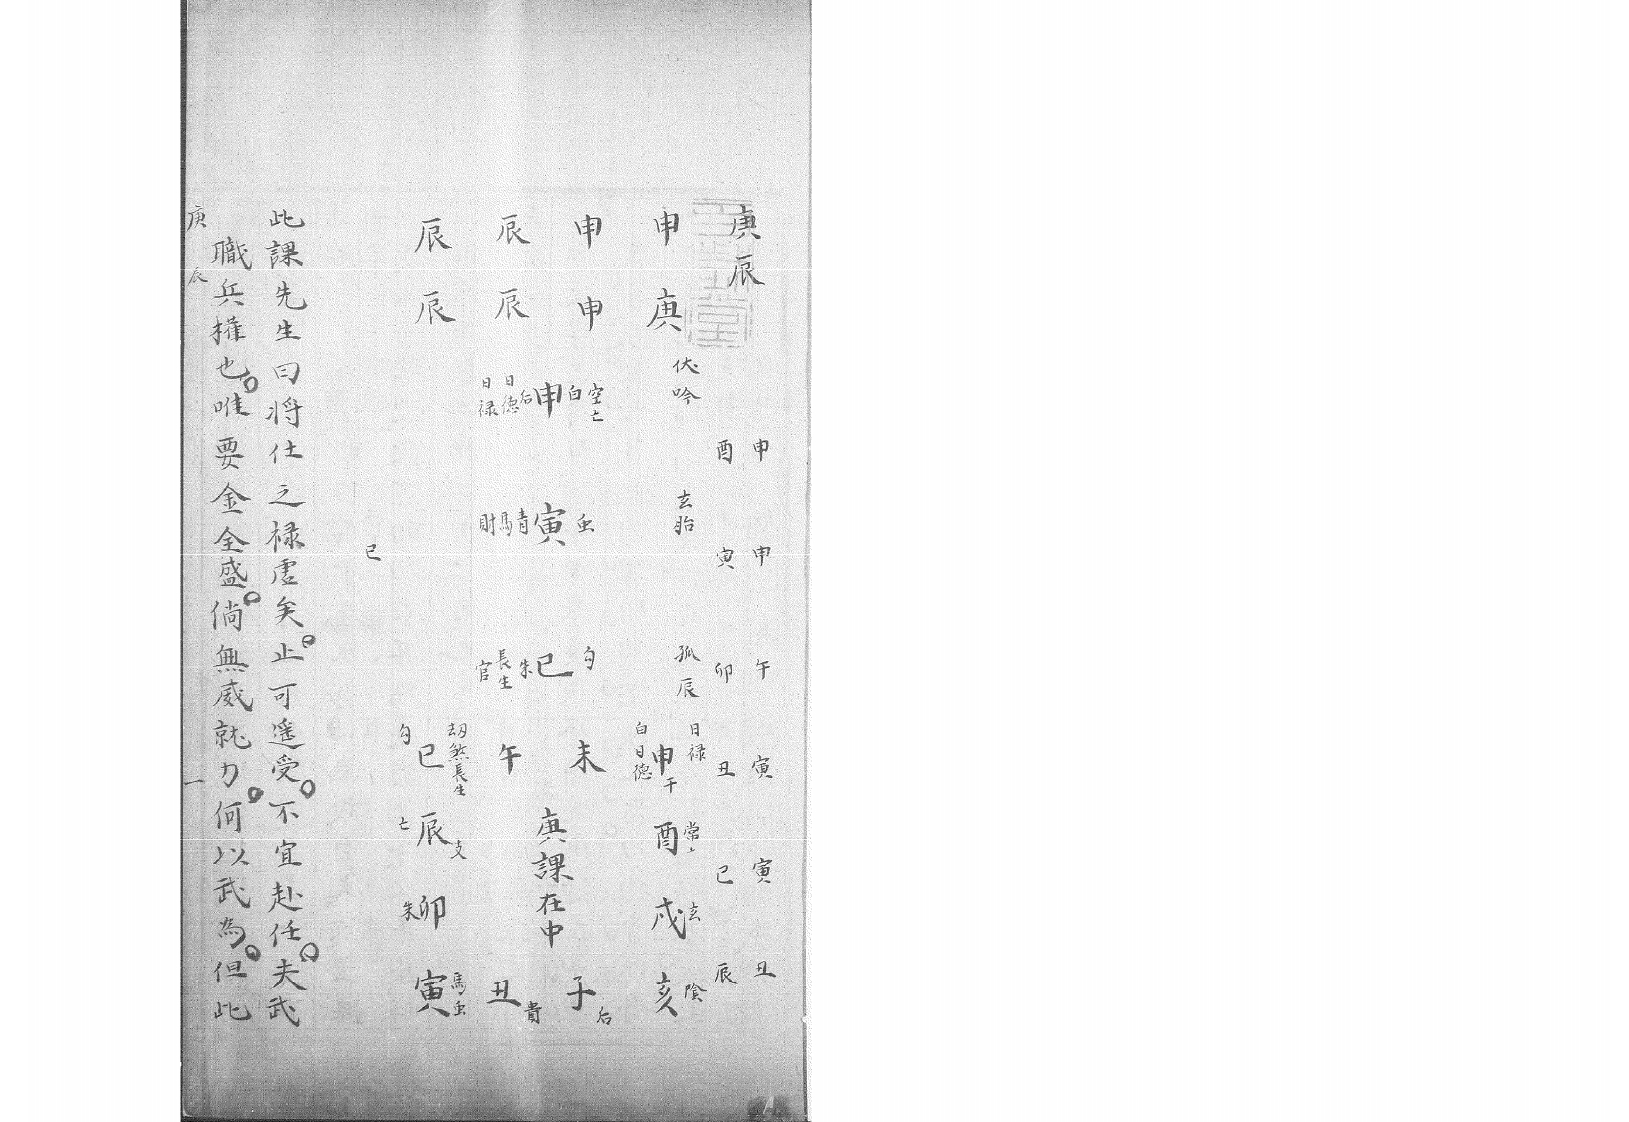 庚辰
申 申 午 寅 寅 丑
酉 寅 卯 丑 巳 辰
伏吟 玄胎 孤辰
申庚
申申
辰辰
辰辰
空亡 白 申 后 日德 日禄
虫 寅 青 馬 財
勾 巳 朱 長生 官
日禄 申 干 白 日德
酉 常
戌 玄
亥 陰
未
午
劫煞 長生 巳 勾
辰 支 亡
卯 朱
寅 馬 虫
丑 貴
子 后
庚課在中
巳
此課先生曰將仕之禄虛矣止可遥受不宜赴任夫武
職兵權也唯要金全盛倘無威就力何以武為但此
庚辰 一